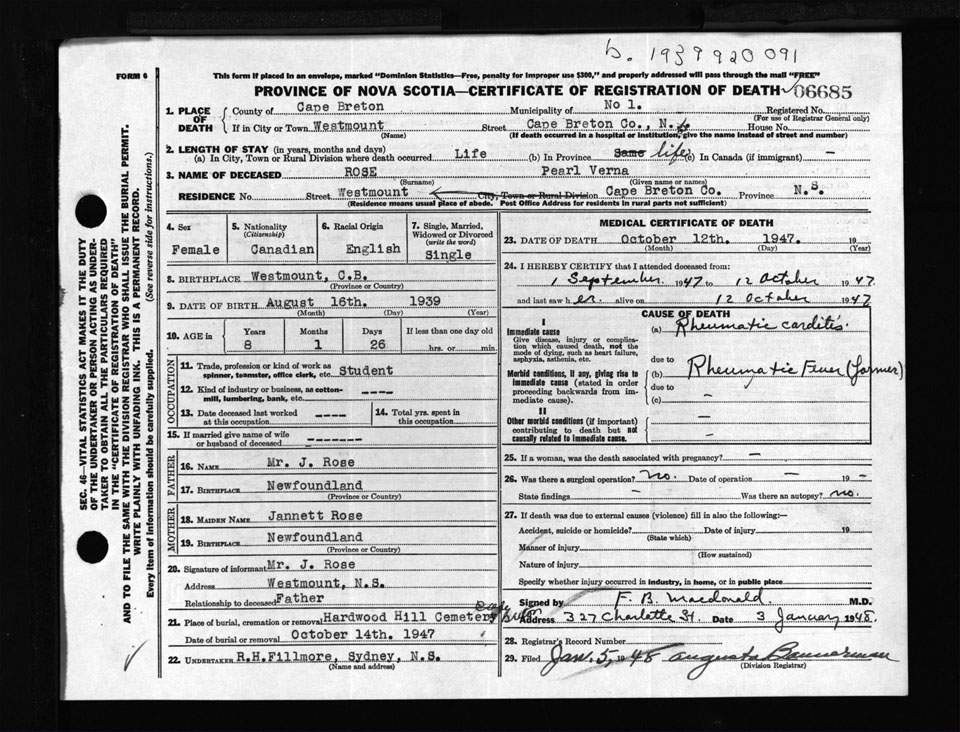 b. 1939 920 091
FORM 6
This form if placed in an envelope, marked "Dominion Statistics—Free, penalty for improper use $300," and properly addressed will pass through the mail "FREE"
PROVINCE OF NOVA SCOTIA—CERTIFICATE OF REGISTRATION OF DEATH 06685
SEC. 46—VITAL STATISTICS ACT MAKES IT THE DUTY
OF THE UNDERTAKER OR PERSON ACTING AS UNDER-
TAKER TO OBTAIN ALL THE PARTICULARS REQUIRED
IN THE "CERTIFICATE OF REGISTRATION OF DEATH"
AND TO FILE THE SAME WITH THE DIVISION REGISTRAR WHO SHALL ISSUE THE BURIAL PERMIT.
WRITE PLAINLY WITH UNFADING INK. THIS IS A PERMANENT RECORD.
Every item of Information should be carefully supplied. (See reverse side for instructions.)
1. PLACE OF DEATH
County of Cape Breton Municipality of No 1. Registered No.
(For use of Registrar General only)
If in City or Town Westmount Street Cape Breton Co., N.S. House No.
(Name) (If death occurred in a hospital or institution, give the name instead of street and number)
2. LENGTH OF STAY (in years, months and days)
(a) In City, Town or Rural Division where death occurred Life (b) In Province Same life (c) In Canada (if immigrant) —
3. NAME OF DECEASED ROSE Pearl Verna
(Surname) (Given name or names)
RESIDENCE No. Street Westmount City, Town or Rural Division Cape Breton Co. Province N.S.
(Residence means usual place of abode. Post Office Address for residents in rural parts not sufficient)
4. Sex
Female
5. Nationality
(Citizenship)
Canadian
6. Racial Origin
English
7. Single, Married,
Widowed or Divorced
(write the word)
Single
8. BIRTHPLACE Westmount, C.B.
(Province or Country)
9. DATE OF BIRTH August 16th. 1939
(Month) (Day) (Year)
10. AGE in
Years Months Days If less than one day old
8 1 26 hrs. or min.
OCCUPATION
11. Trade, profession or kind of work as
spinner, teamster, office clerk, etc. Student
12. Kind of industry or business, as cotton-
mill, lumbering, bank, etc. ----
13. Date deceased last worked
at this occupation ----
14. Total yrs. spent in
this occupation
15. If married give name of wife
or husband of deceased -------
FATHER
16. NAME Mr. J. Rose
17. BIRTHPLACE Newfoundland
(Province or Country)
MOTHER
18. MAIDEN NAME Jannett Rose
19. BIRTHPLACE Newfoundland
(Province or Country)
20. Signature of informant Mr. J. Rose
Address Westmount, N.S.
Relationship to deceased Father
21. Place of burial, cremation or removal Hardwood Hill Cemetery
Date of burial or removal October 14th. 1947
22. UNDERTAKER R.H.Fillmore, Sydney, N.S.
(Name and address)
MEDICAL CERTIFICATE OF DEATH
23. DATE OF DEATH October 12th. 1947. 19
(Month) (Day) (Year)
24. I HEREBY CERTIFY that I attended deceased from:
1 September 1947 to 12 October 1947
and last saw her alive on 12 October 1947
CAUSE OF DEATH
I
Immediate cause
Give disease, injury or complica-
tion which caused death, not the
mode of dying, such as heart failure,
asphyxia, asthenia, etc.
(a) Rheumatic carditis.
due to
Morbid conditions, if any, giving rise to
immediate cause (stated in order
proceeding backwards from im-
mediate cause).
(b) Rheumatic Fever (former)
due to
(c) —
II
Other morbid conditions (if important)
contributing to death but not
causally related to immediate cause.
—
—
25. If a woman, was the death associated with pregnancy? —
26. Was there a surgical operation? no. Date of operation — 19 —
State findings — Was there an autopsy? no.
27. If death was due to external causes (violence) fill in also the following:—
Accident, suicide or homicide? Date of injury 19
(State which)
Manner of injury
(How sustained)
Nature of injury
Specify whether injury occurred in industry, in home, or in public place
Signed by F. B. Macdonald. M.D.
Address 327 Charlotte St. Date 3 January 1948.
28. Registrar's Record Number
29. Filed Jan. 5, 1948 Augusta Bannerman
(Division Registrar)